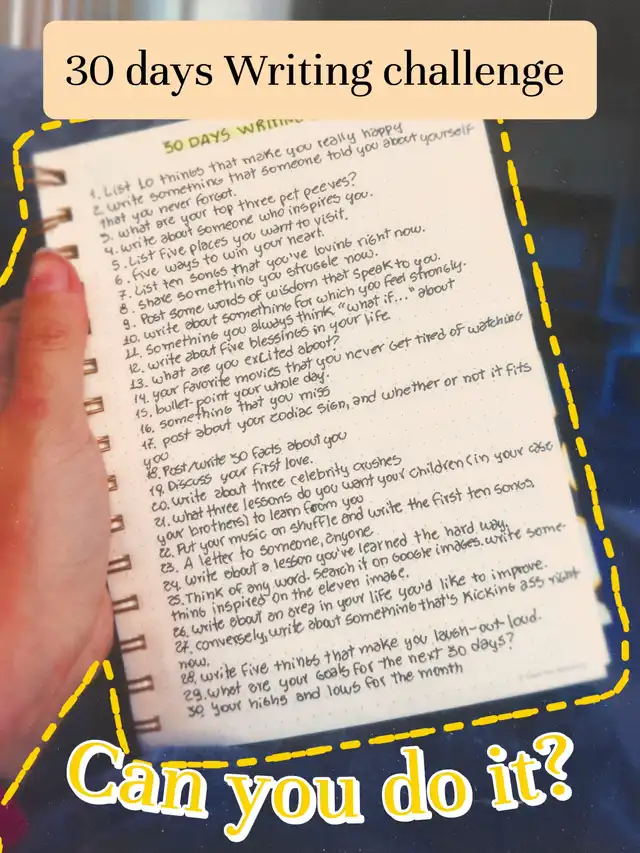 30 days Writing challenge
30 DAYS WRITING
1. List 10 things that make you really happy
2. write something that someone told you about yourself
that you never forgot.
3. what are your top three pet peeves?
4. write about someone who inspires you.
5. List five places you want to visit.
6. five ways to win your heart.
7. List ten songs that you've loving right now.
8. share something you struggle now.
9. Post some words of wisdom that speak to you.
10. write about something for which you feel strongly.
11. something you always think "what if..." about
12. write about five blessings in your life
13. what are you excited about?
14. your favorite movies that you never get tired of watching
15. bullet-point your whole day.
16. something that you miss
17. post about your zodiac sign, and whether or not it fits
you
18. Post/write 30 facts about you
19. Discuss your first love.
20. write about three celebrity crushes
21. what three lessons do you want your children (in your case
your brothers) to learn from you
22. Put your music on shuffle and write the first ten songs
23. A letter to someone, anyone
24. write about a lesson you've learned the hard way.
25. Think of any word. search it on Google images. write some-
thing inspired on the eleven image.
26. write about an area in your life you'd like to improve.
27. conversely, write about something that's kicking ass right
now.
28. write five things that make you laugh-out-loud.
29. what are your goals for the next 30 days?
30. your highs and lows for the month
Can you do it?